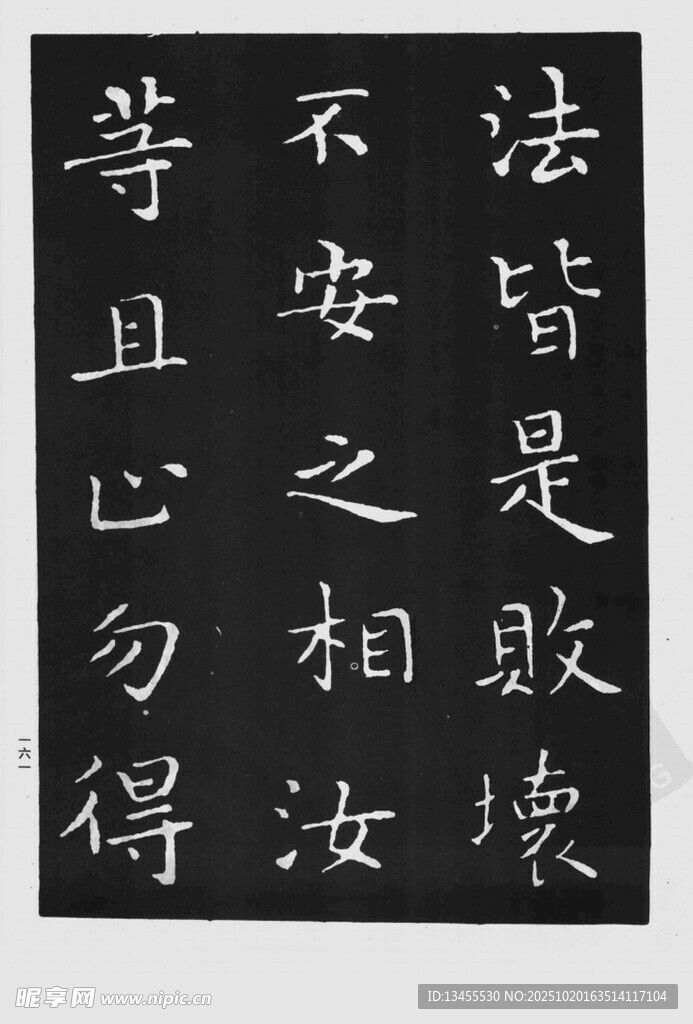 法皆是敗壞
不安之相汝
等且止勿得
一六一
昵享网 www.nipic.cn
ID:13455530 NO:20251020163514117104